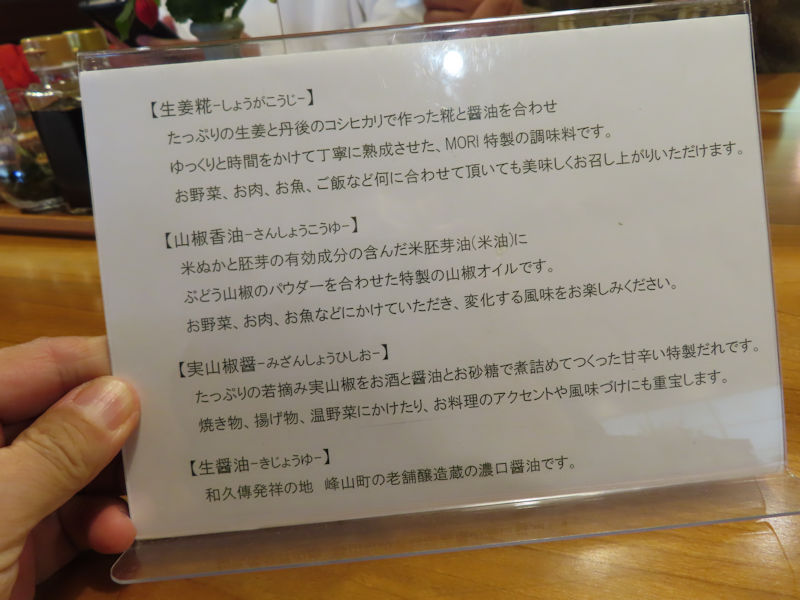 【生姜糀-しょうがこうじ-】
たっぷりの生姜と丹後のコシヒカリで作った糀と醤油を合わせ
ゆっくりと時間をかけて丁寧に熟成させた、MORI 特製の調味料です。
お野菜、お肉、お魚、ご飯など何に合わせて頂いても美味しくお召し上がりいただけます。
【山椒香油-さんしょうこうゆ-】
米ぬかと胚芽の有効成分の含んだ米胚芽油(米油)に
ぶどう山椒のパウダーを合わせた特製の山椒オイルです。
お野菜、お肉、お魚などにかけていただき、変化する風味をお楽しみください。
【実山椒醤-みざんしょうひしお-】
たっぷりの若摘み実山椒をお酒と醤油とお砂糖で煮詰めてつくった甘辛い特製だれです。
焼き物、揚げ物、温野菜にかけたり、お料理のアクセントや風味づけにも重宝します。
【生醤油-きじょうゆ-】
和久傳発祥の地　峰山町の老舗醸造蔵の濃口醤油です。